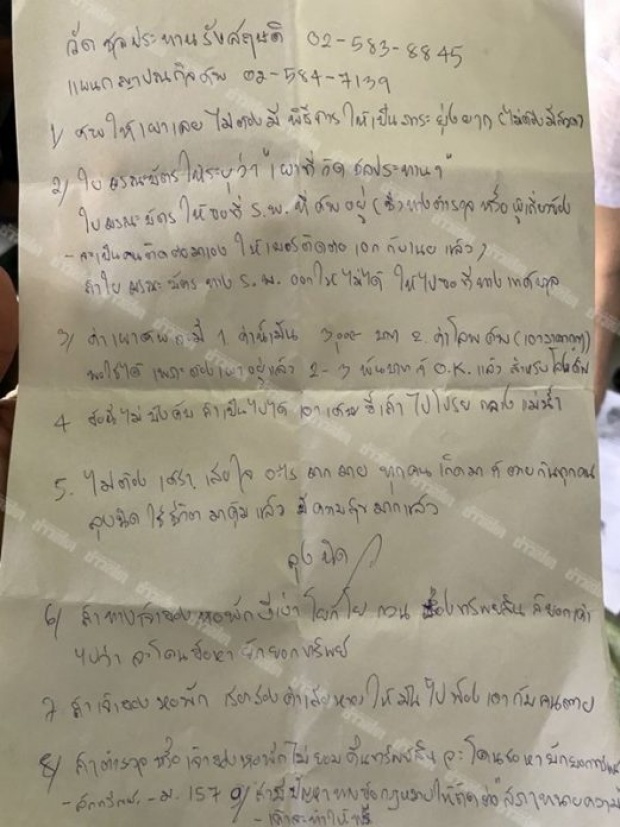 วัดชลประทานรังสฤษดิ์ 02-583-8845
แผนกฌาปนกิจศพ 02-584-7139
1) ศพให้เผาเลย ไม่ต้องมี พิธีการ ให้เป็นภาระ ยุ่งยาก (ไม่ต้องมีสวด)
2) ใบมรณะบัตร ให้ระบุว่า "เผาที่วัด ชลประทานฯ"
ใบมรณะบัตร ให้ขอที่ ร.พ. ที่ศพอยู่ (ซึ่งทางตำรวจ หรือ ผู้เกี่ยวข้อง
- จะเป็นคนติดต่อมาเอง ให้เบอร์ติดต่อ เอก กับเนย แล้ว)
ถ้าใบ มรณะบัตร ทาง ร.พ. ออกให้ไม่ได้ ให้ไปขอที่ทาง เทศบาล
3) ค่าเผาศพ จะมี 1. ค่าน้ำมัน บาท 2. ค่าโลงศพ
ก็ใช้ได้ เพราะต้องเผาอยู่แล้ว 2-3 พันบาท ก็ O.K. แล้ว สำหรับ
4 ข้อนี้ไม่บังคับ ถ้าเป็นไปได้ เอาเศษขี้เถ้า ไปโปรย กลางแม่น้ำ
5. ไม่ต้อง เศร้า, เสียใจ อะไร มากมาย ทุกคน เกิดมา ก็ ตายกันทุกคน
ลุงนิด ใช้ชีวิต มาคุ้ม แล้ว มีความสุข มากแล้ว
ลุงนิด
6) ถ้าทางเจ้าของหอพัก ขี้เง่า โยกโย กวน เรื่องทรัพย์สิน ก็บอกเค้า
ไปว่า จะโดนข้อหา ยักยอกทรัพย์
7 ถ้าเจ้าของหอพัก เรียกร้องค่าเสียหาย ให้มันไปฟ้องเอากับคนตาย
8) ถ้าตำรวจ หรือ เจ้าของหอพัก ไม่ยอมคืนทรัพย์สิน จะโดนข้อหายักยอกทรัพย์
- ม.157 9) ถ้ามีปัญหาทางข้อกฎหมายให้ติดต่อ สภาทนายความ
- เค้าจะทำให้ฟรี
ข่าวสด